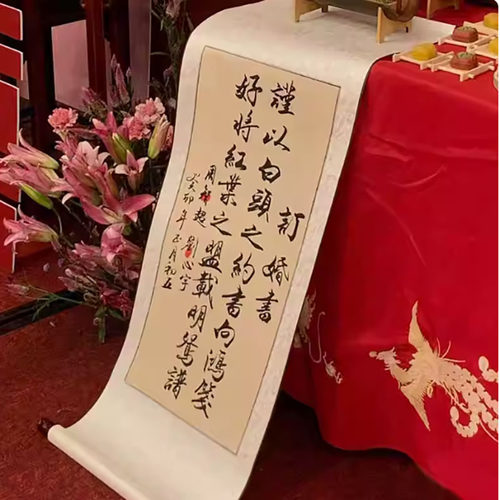 訂婚書
謹以白頭之約書向鴻箋
好將紅葉之盟載明鴛譜
劉心宇
癸卯年正月初五